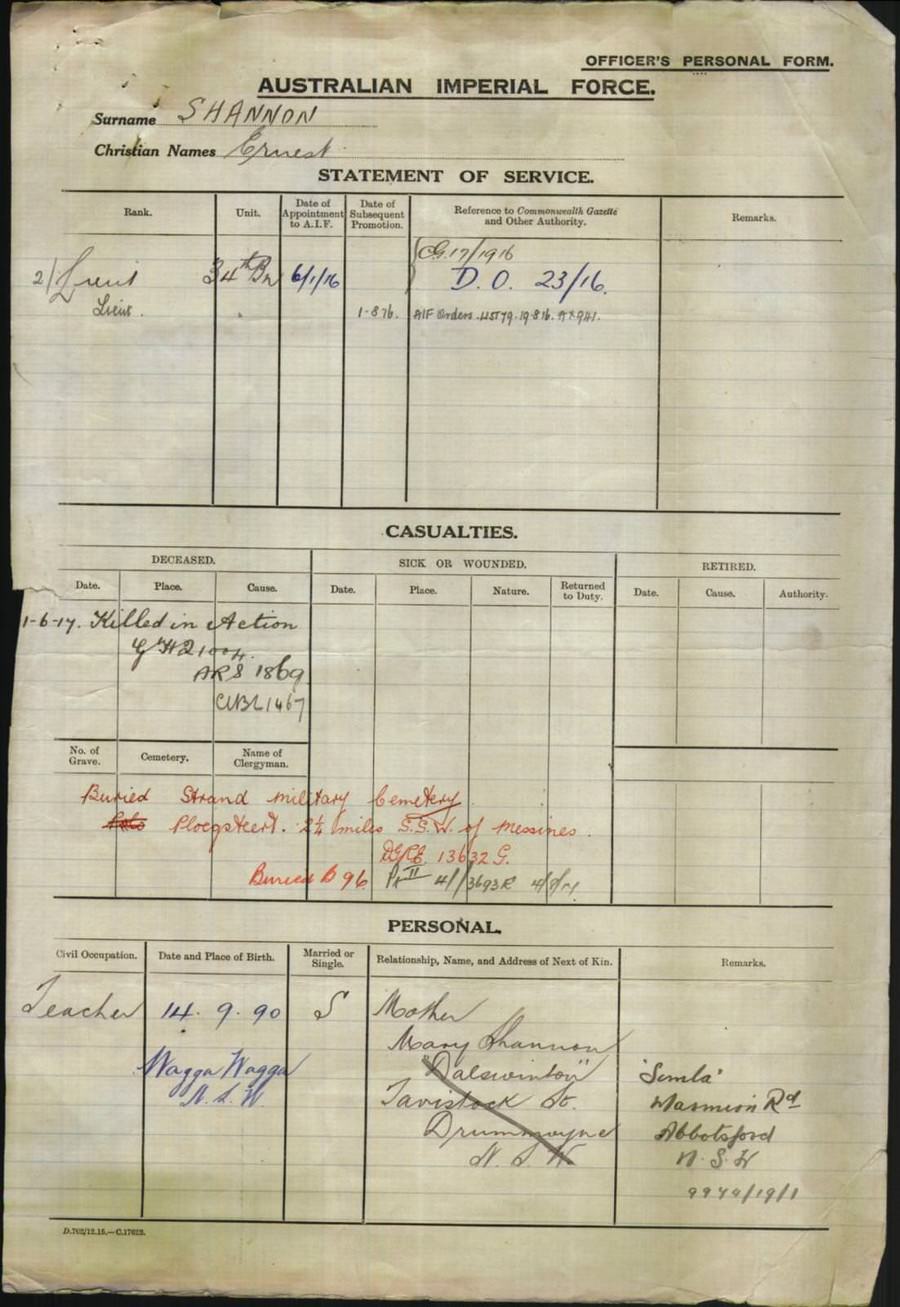 OFFICER'S PERSONAL FORM.
AUSTRALIAN IMPERIAL FORCE.
Surname SHANNON
Christian Names Ernest
STATEMENT OF SERVICE.
Rank. Unit. Date of Appointment to A.I.F. Date of Subsequent Promotion. Reference to Commonwealth Gazette and Other Authority. Remarks.
C.G. 17/1916
2/Lieut 34th Bn 6/1/16 D. O. 23/16.
Lieut. 1-8-16. AIF Orders. LIST 79. 19.8.16.
CASUALTIES.
DECEASED. SICK OR WOUNDED. RETIRED.
Date. Place. Cause. Date. Place. Nature. Returned to Duty. Date. Cause. Authority.
1-6-17. Killed in Action
ARS 1869
CUBL 1467
No. of Grave. Cemetery. Name of Clergyman.
Buried Strand Military Cemetery
Ploegsteert. 2¼ miles S.S.W. of Messines.
DGRE 13632 G.
Buried B 96 Pt II
PERSONAL.
Civil Occupation. Date and Place of Birth. Married or Single. Relationship, Name, and Address of Next of Kin. Remarks.
Teacher 14. 9. 90 S Mother
Mary Shannon
Wagga Wagga "Dalswinton" 'Simla'
N. S. W Tavistock St. Marmion Rd
Drummoyne Abbotsford
N. S. W N. S. W
9974/19/1
D.702/12.15.—C.17622.